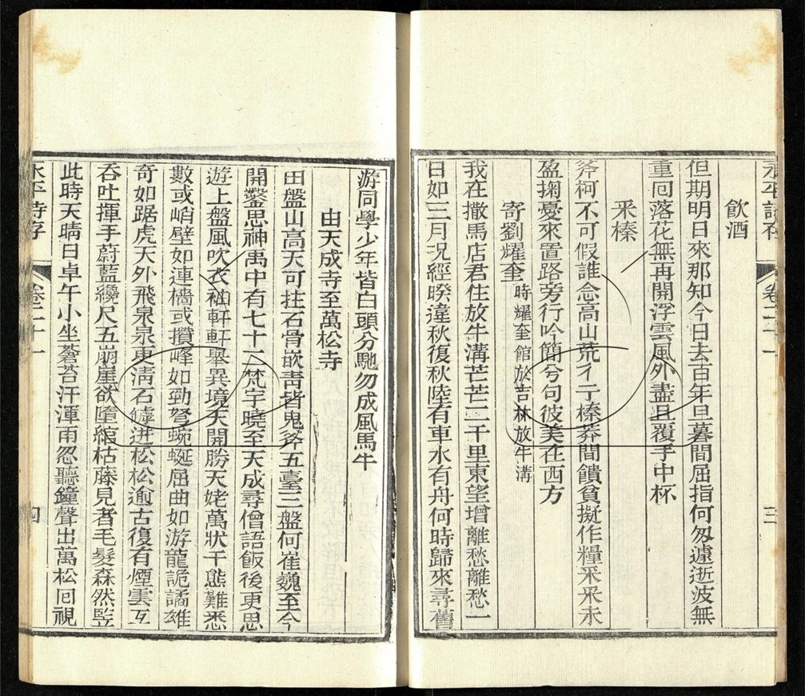 永平詩存
卷二十一
三
飲酒
但期明日來那知今日去百年旦暮間屈指何匆遽逝波無
重回落花無再開浮雲風外盡且覆手中杯
采榛
斧柯不可假誰念高山荒彳亍榛莽間饋貧擬作糧采采未
盈掬憂來置路旁行吟簡兮句彼美在西方
寄劉耀奎時耀奎館於吉林放牛溝
我在撒馬店君住放牛溝芒芒二千里東望增離愁離愁一
日如三月况經暌違秋復秋陸有車水有舟何時歸來尋舊
游同學少年皆白頭分馳勿成風馬牛
由天成寺至萬松寺
田盤山高天可拄石骨嵌靑皆鬼斧五臺三盤何崔巍至今
開鑿思神禹中有七十二梵宇曉至天成尋僧語飯後更思
遊上盤風吹衣袖軒軒舉異境天開勝天姥萬狀千態難悉
數或峭壁如連檣或攢峰如勁弩蜿蜒屈曲如游龍詭譎雄
奇如踞虎天外飛泉泉更淸石罅迸松松逾古復有煙雲互
吞吐揮手蔚藍纔尺五崩崖欲墮綰枯藤見者毛髮森然竪
此時天晴日卓午小坐蒼苔汗渾雨忽聽鐘聲出萬松囘視
永平詩存
卷二十一
四